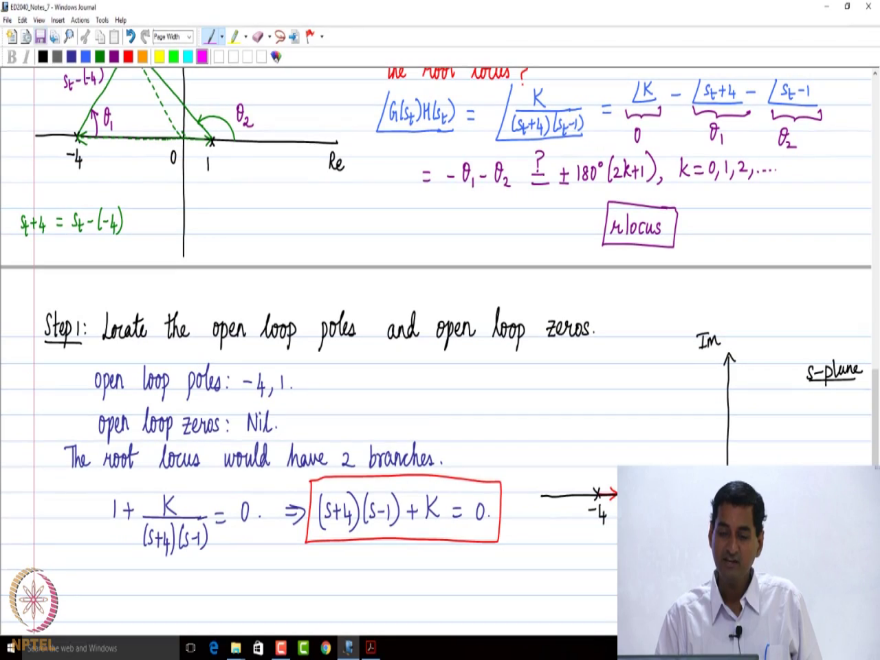 ED2040_Notes_7 - Windows Journal
File Edit View Insert Actions Tools Help
Page Width
B I
the root locus?
s_t-(-4)
θ₁
θ₂
-4 0 1 Re
s_t+4 = s_t-(-4)
∠G(s_t)H(s_t) = ∠K/((s_t+4)(s_t-1)) = ∠K - ∠s_t+4 - ∠s_t-1
0 θ₁ θ₂
= -θ₁-θ₂ ≟ ±180°(2k+1), k=0,1,2,....
rlocus
Step 1: Locate the open loop poles and open loop zeros.
Im
s-plane
open loop poles: -4, 1.
open loop zeros: Nil.
The root locus would have 2 branches.
1 + K/((s+4)(s-1)) = 0. ⇒ (s+4)(s-1) + K = 0.
-4
NPTEL
the web and Windows